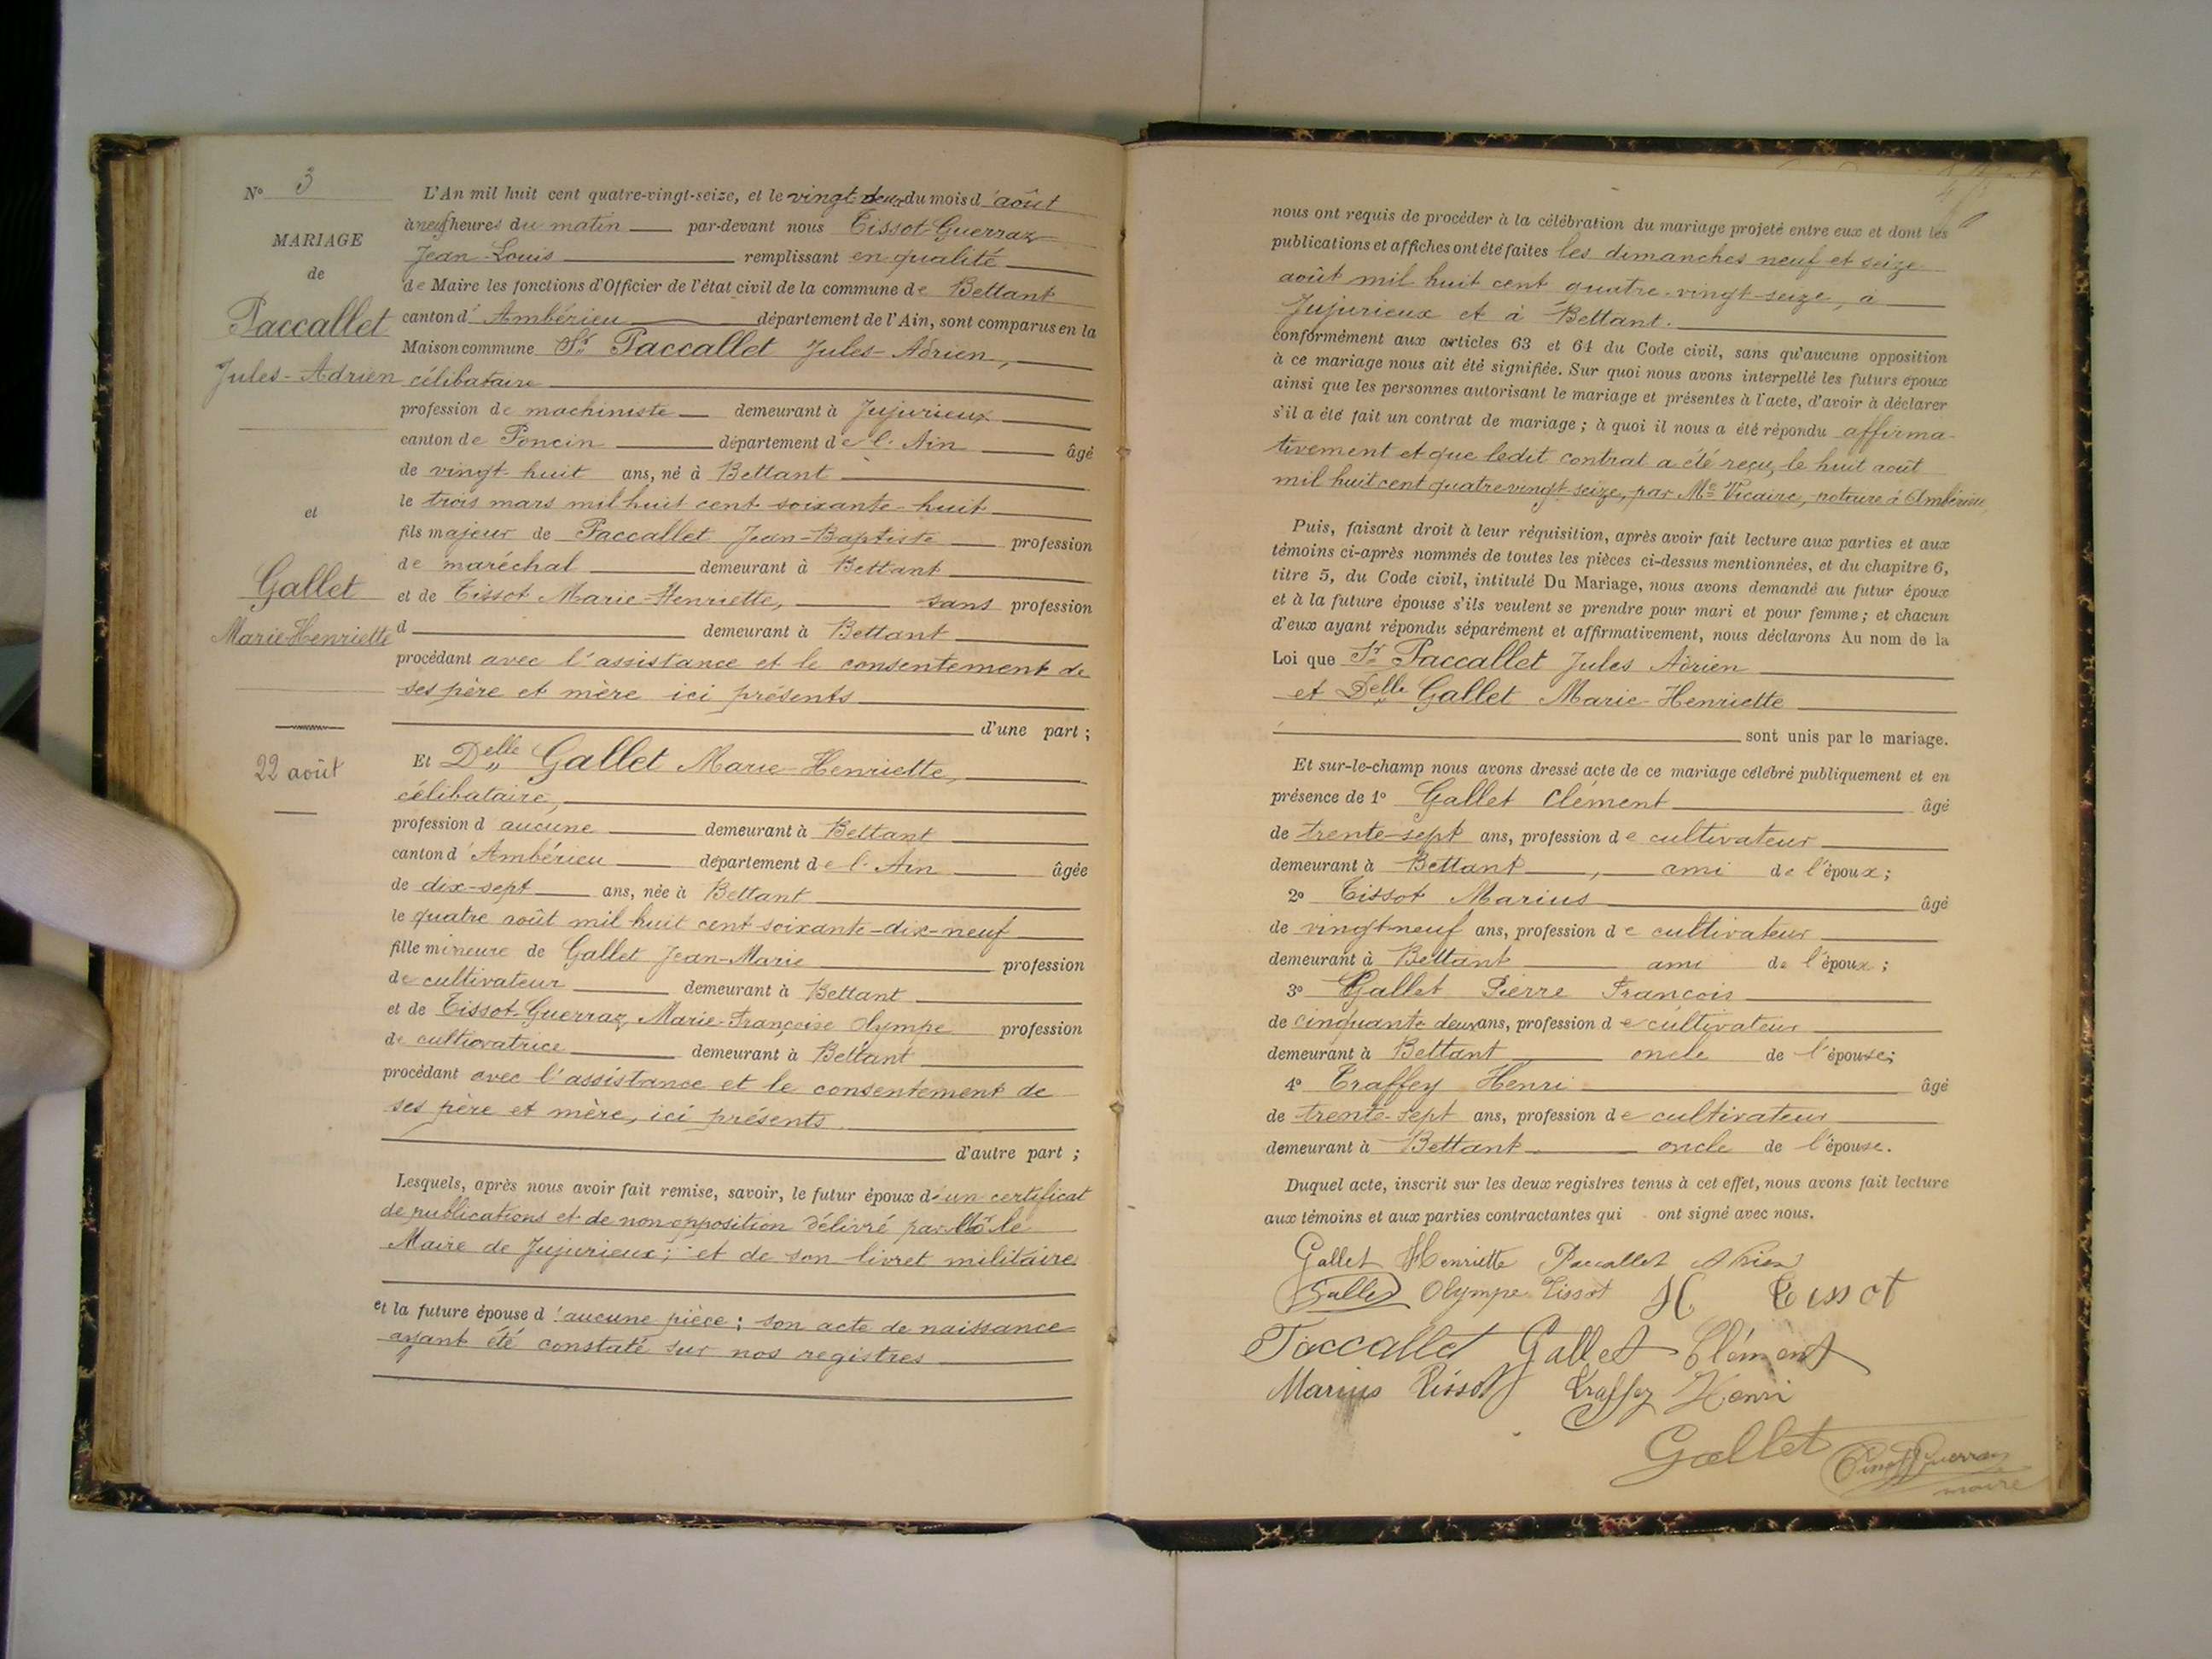 N° 3
MARIAGE
de
Paccallet
Jules-Adrien
et
Gallet
Marie-Henriette
22 août
L'An mil huit cent quatre-vingt-seize, et le vingt-deux du mois d'août
à neuf heures du matin par-devant nous Tissot-Guerraz
Jean-Louis remplissant en qualité
de Maire les fonctions d'Officier de l'état civil de la commune de Bettant
canton d'Ambérieu département de l'Ain, sont comparus en la
Maison commune Sr Paccallet Jules-Adrien,
célibataire
profession de machiniste demeurant à Jujurieux
canton de Poncin département de l'Ain âgé
de vingt-huit ans, né à Bettant
le trois mars mil huit cent soixante-huit
fils majeur de Paccallet Jean-Baptiste profession
de maréchal demeurant à Bettant
et de Tissot Marie-Henriette, sans profession
d demeurant à Bettant
procédant avec l'assistance et le consentement de
ses père et mère ici présents
d'une part ;
Et Delle Gallet Marie-Henriette,
célibataire,
profession d'aucune demeurant à Bettant
canton d'Ambérieu département de l'Ain âgée
de dix-sept ans, née à Bettant
le quatre août mil huit cent soixante-dix-neuf
fille mineure de Gallet Jean-Marie profession
de cultivateur demeurant à Bettant
et de Tissot-Guerraz Marie-Françoise Olympe profession
de cultivatrice demeurant à Bettant
procédant avec l'assistance et le consentement de
ses père et mère, ici présents
d'autre part ;
Lesquels, après nous avoir fait remise, savoir, le futur époux d'un certificat
de publications et de non opposition délivré par Mr le
Maire de Jujurieux ; et de son livret militaire
et la future épouse d'aucune pièce ; son acte de naissance
ayant été constaté sur nos registres
nous ont requis de procéder à la célébration du mariage projeté entre eux et dont les
publications et affiches ont été faites les dimanches neuf et seize
août mil huit cent quatre-vingt-seize, à
Jujurieux et à Bettant.
conformément aux articles 63 et 64 du Code civil, sans qu'aucune opposition
à ce mariage nous ait été signifiée. Sur quoi nous avons interpellé les futurs époux
ainsi que les personnes autorisant le mariage et présentes à l'acte, d'avoir à déclarer
s'il a été fait un contrat de mariage ; à quoi il nous a été répondu affirma-
tivement et que ledit contrat a été reçu, le huit août
mil huit cent quatre vingt-seize, par Me Vicaire, notaire à Ambérieu
Puis, faisant droit à leur réquisition, après avoir fait lecture aux parties et aux
témoins ci-après nommés de toutes les pièces ci-dessus mentionnées, et du chapitre 6,
titre 5, du Code civil, intitulé Du Mariage, nous avons demandé au futur époux
et à la future épouse s'ils veulent se prendre pour mari et pour femme ; et chacun
d'eux ayant répondu séparément et affirmativement, nous déclarons Au nom de la
Loi que Sr Paccallet Jules Adrien
et Delle Gallet Marie-Henriette
sont unis par le mariage.
Et sur-le-champ nous avons dressé acte de ce mariage célébré publiquement et en
présence de 1° Gallet Clément âgé
de trente-sept ans, profession de cultivateur
demeurant à Bettant, ami de l'époux ;
2° Tissot Marius âgé
de vingt-neuf ans, profession de cultivateur
demeurant à Bettant ami de l'époux ;
3° Gallet Pierre François
de cinquante deux ans, profession de cultivateur
demeurant à Bettant oncle de l'épouse ;
4° Traffey Henri âgé
de trente-sept ans, profession de cultivateur
demeurant à Bettant oncle de l'épouse.
Duquel acte, inscrit sur les deux registres tenus à cet effet, nous avons fait lecture
aux témoins et aux parties contractantes qui ont signé avec nous.
Gallet Henriette Paccallet Adrien
Gallet Olympe Tissot H Tissot
Paccallet Gallet Clément
Marius Tissot Traffey Henri
Gallet Tissot Guerraz
maire